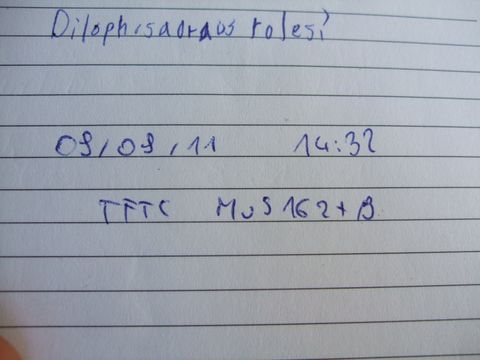 Dilophisauraus rolesi
09/09/11 14:32
TFTC MuS162+B